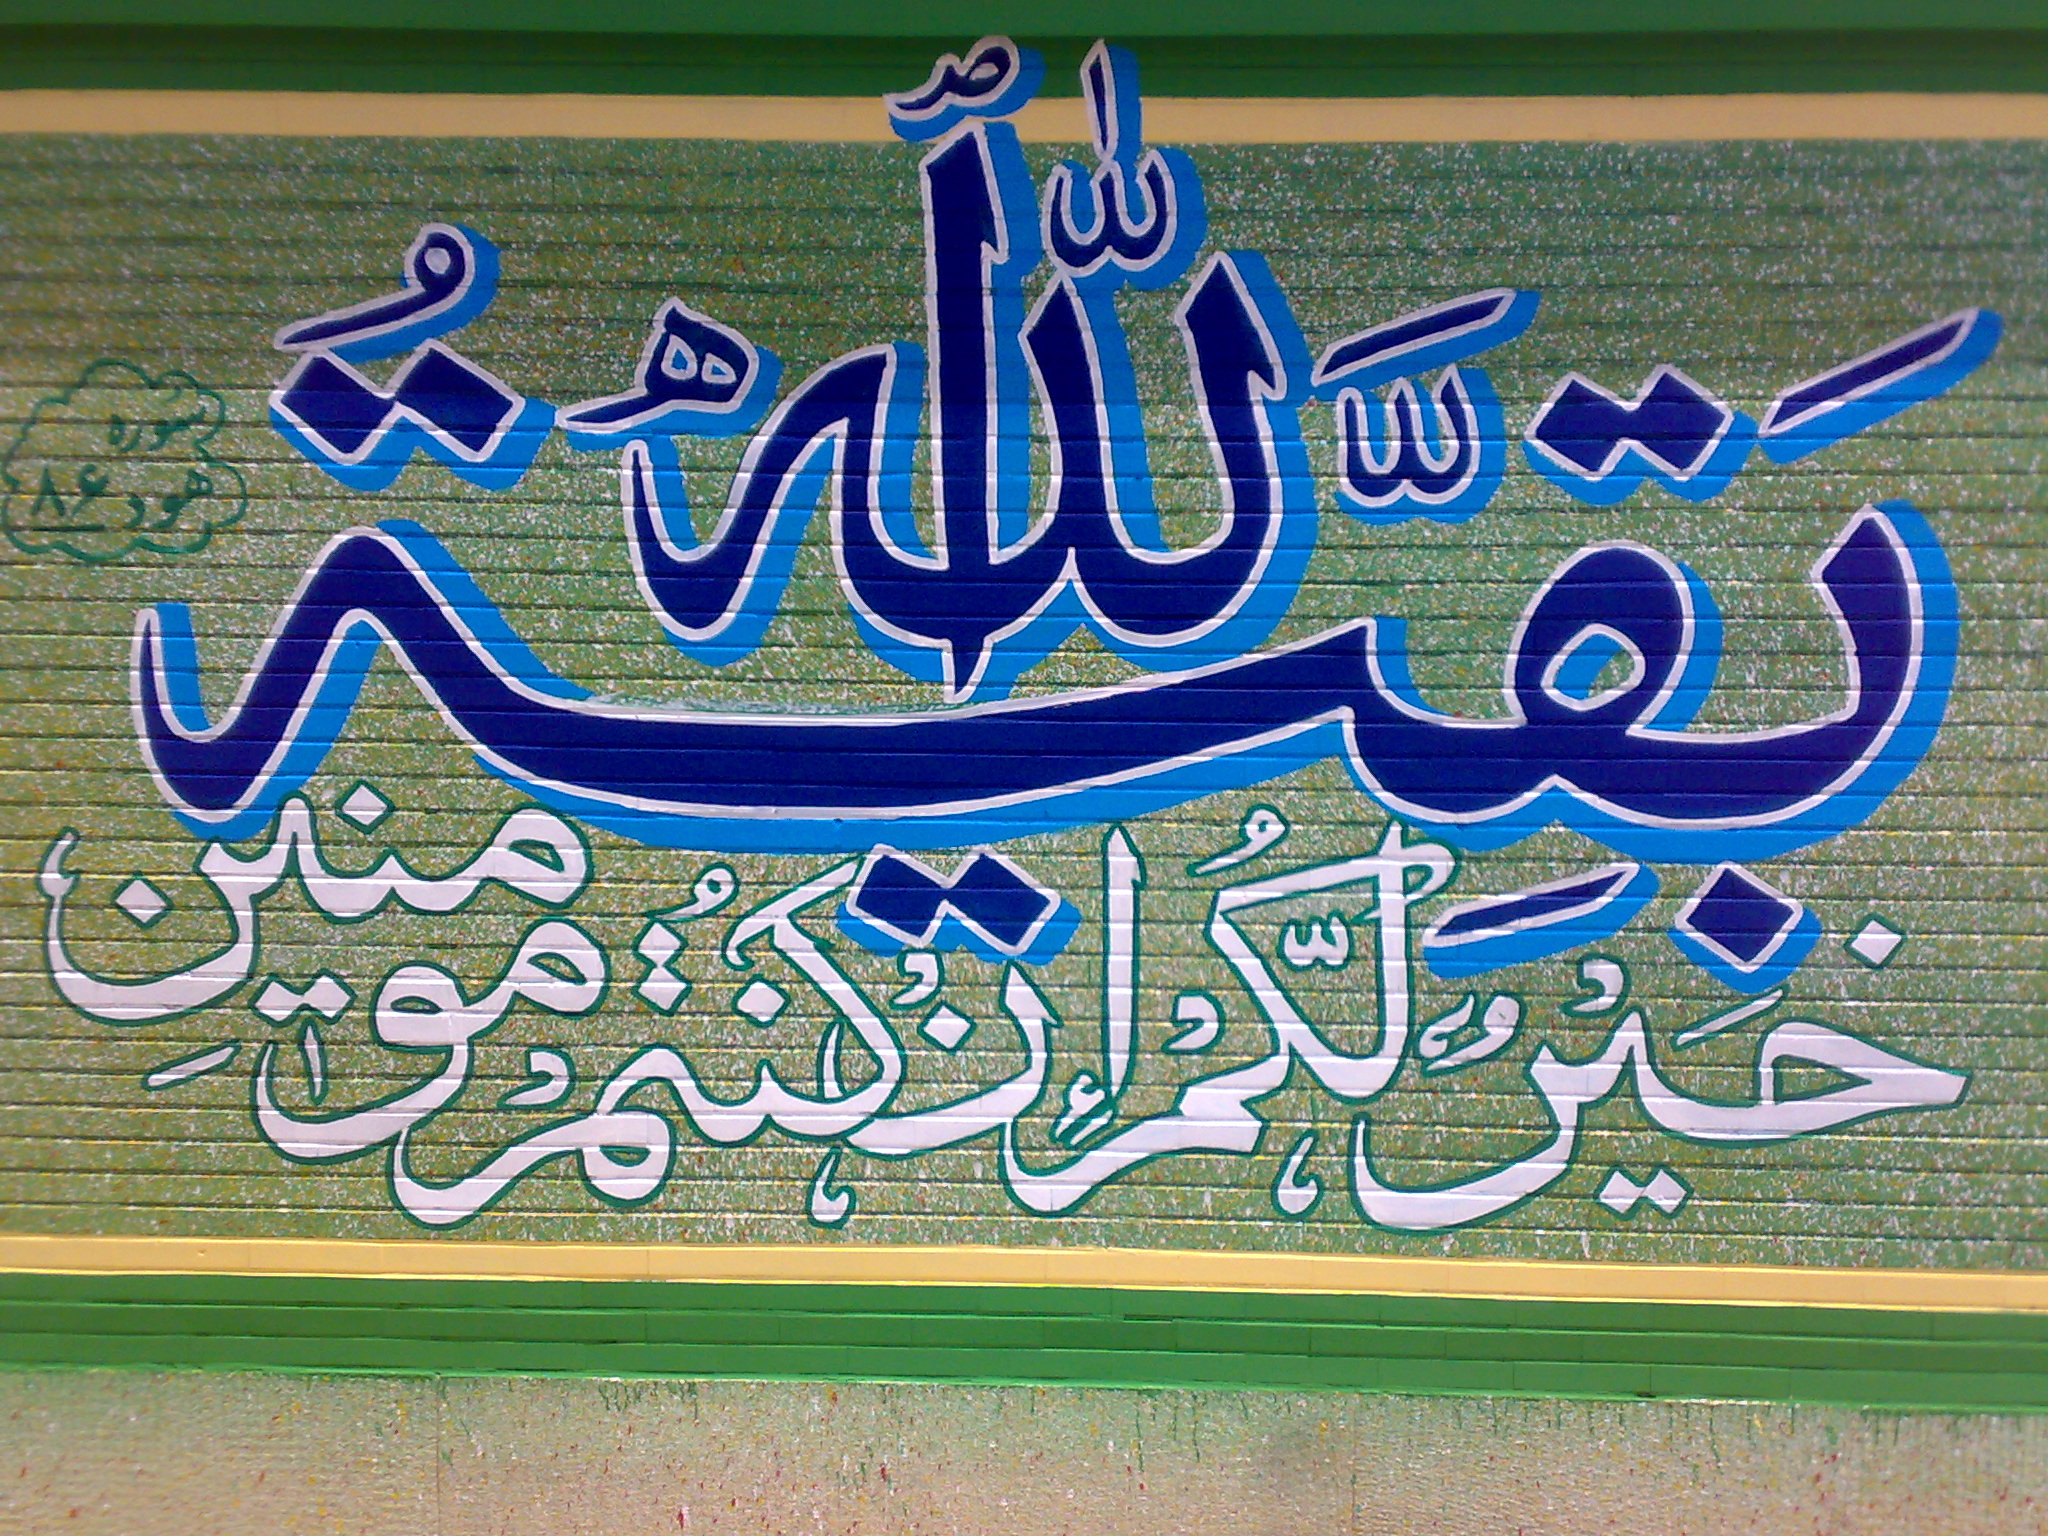 بَقِيَّتُ ٱللَّهِ
خَيْرٌ لَّكُمْ إِن كُنتُم مُّؤْمِنِينَ
سوره
هود ۸۶